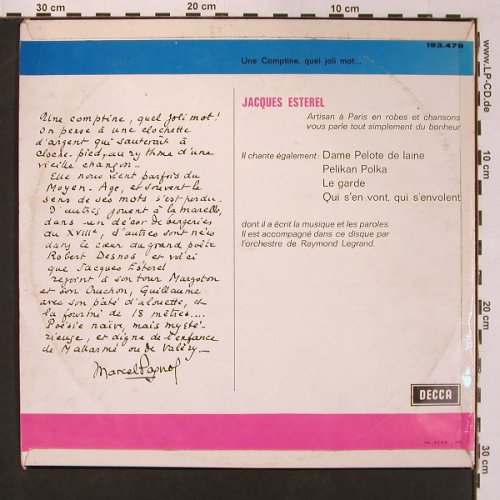 30 cm
20 cm
10 cm
www.LP-CD.de
193.478
Une Comptine, quel joli mot...
JACQUES ESTEREL
Artisan à Paris en robes et chansons
vous parle tout simplement du bonheur
Il chante également: Dame Pelote de laine
Pelikan Polka
Le garde
Qui s'en vont, qui s'envolent
dont il a écrit la musique et les paroles.
Il est accompagné dans ce disque par
l'orchestre de Raymond Legrand.
Une comptine, quel joli mot!
On pense à une clochette
d'argent qui sauterait à
cloche-pied, au rythme d'une
vieille chanson...
Elle nous vient parfois du
Moyen-Age, et souvent le
sens de ses mots s'est perdu..
D'autres jouent à la marelle,
dans un décor de bergeries
du XVIIIe, d'autres sont nées
dans le cœur du grand poète
Robert Desnos et voici
que Jacques Esterel
rejoint à son tour Margoton
et son Cruchon, Guillaume
avec son pâté d'alouette, et
la fourmi de 18 mètres....
Poésie naïve, mais mysté-
rieuse, et digne de l'enfance
de Mallarmé ou de Valéry.
Marcel Pagnol
DECCA
10 cm
20 cm
30 cm